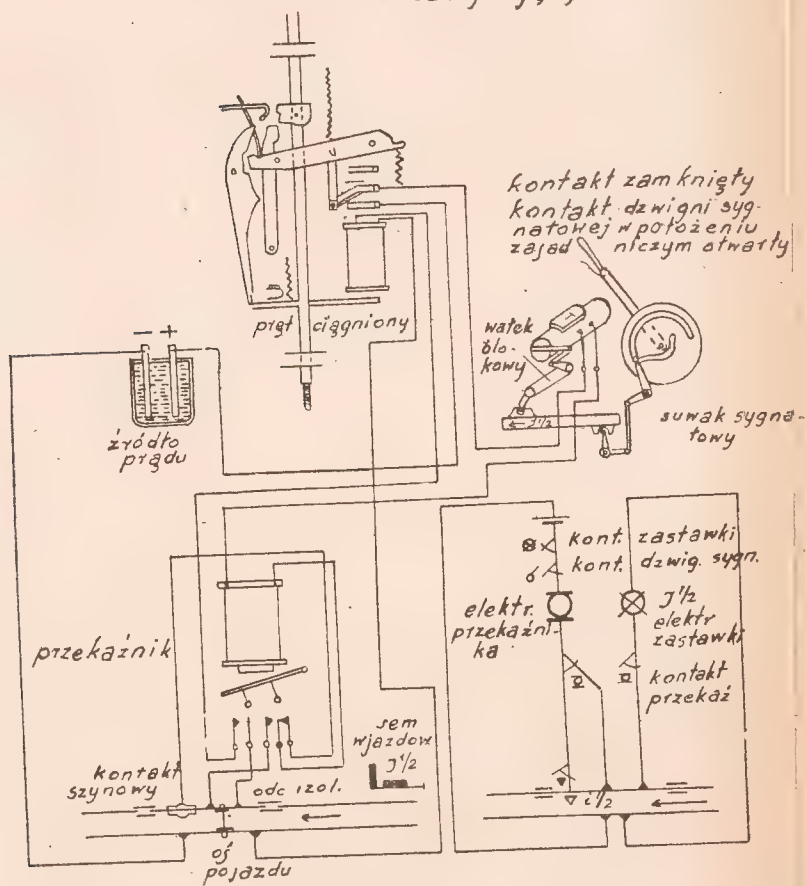 kontakt zamknięty
kontakt dzwigni syg-
nałowej w położeniu
zasad niczym otwarty
pręt ciągniony
wałek
blo-
kowy
J 1/2
suwak sygna-
łowy
- +
źródło
prądu
kont. zastawki
kont. dzwig. sygn.
elektr.
przekaźni-
ka
J 1/2
elektr
zastawki
kontakt
przekaź
przekaźnik
sem
wjazdow
J 1/2
kontakt
szynowy
odc izol.
i 1/2
oś
pojazdu